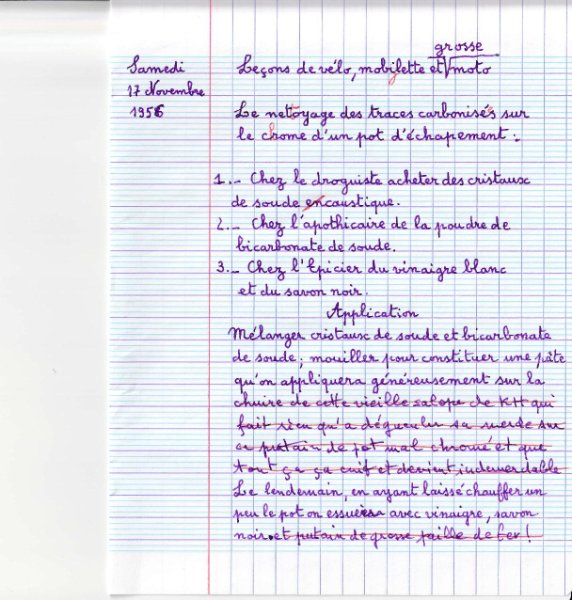 grosse
Samedi Leçons de vélo, mobylette et √moto
17 Novembre
1956 Le nettoyage des traces carbonisés sur
le chrome d'un pot d'échapement :
1._ Chez le droguiste acheter des cristaux
de soude encaustique.
2._ Chez l'apothicaire de la poudre de
bicarbonate de soude.
3._ Chez l'Epicier du vinaigre blanc
et du savon noir.
Application
Mélanger cristaux de soude et bicarbonate
de soude ; mouiller pour constituer une pâte
qu'on appliquera généreusement sur la
chuire de cette vieille salope de KH qui
fait rien qu'a dégueuler sa merde sur
ce putain de pot mal chromé et que
tout ça ça cuit et devient indemerdable
Le lendemain, en ayant laissé chauffer un
peu le pot on essuiera avec vinaigre, savon
noir. et putain de grosse paille de fer !